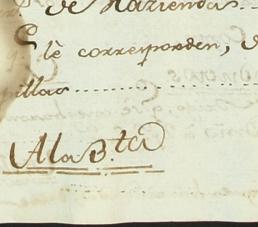 de Hazienda
le corresponden,
pillas
A la B.ta